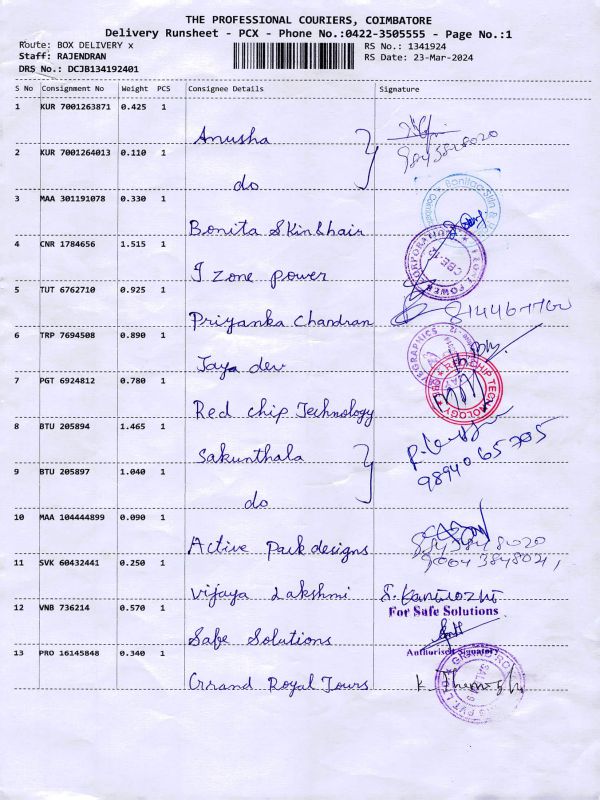 THE PROFESSIONAL COURIERS, COIMBATORE
Delivery Runsheet - PCX - Phone No.:0422-3505555 - Page No.:1
Route: BOX DELIVERY x
RS No.: 1341924
Staff: RAJENDRAN
RS Date: 23-Mar-2024
DRS No.: DCJB134192401
S No Consignment No Weight PCS Consignee Details Signature
1 KUR 7001263871 0.425 1
Anusha
9843848020
2 KUR 7001264013 0.110 1
do
3 MAA 301191078 0.330 1
Bonita Skin & hair
4 CNR 1784656 1.515 1
I zone power
POWER CORPORATION
CBE-12
5 TUT 6762710 0.925 1
Priyanka Chandran
6 TRP 7694508 0.890 1
Jaya dev
7 PGT 6924812 0.780 1
Red chip Technology
RED CHIP TECHNOLOGY
8 BTU 205894 1.465 1
Sakunthala
9894065305
9 BTU 205897 1.040 1
do
10 MAA 104444899 0.090 1
Active Park designs
9843848020
11 SVK 60432441 0.250 1
Vijaya Lakshmi
12 VNB 736214 0.570 1
For Safe Solutions
Safe Solutions
Authorised Signatory
13 PRO 16145848 0.340 1
Grrand Royal Tours